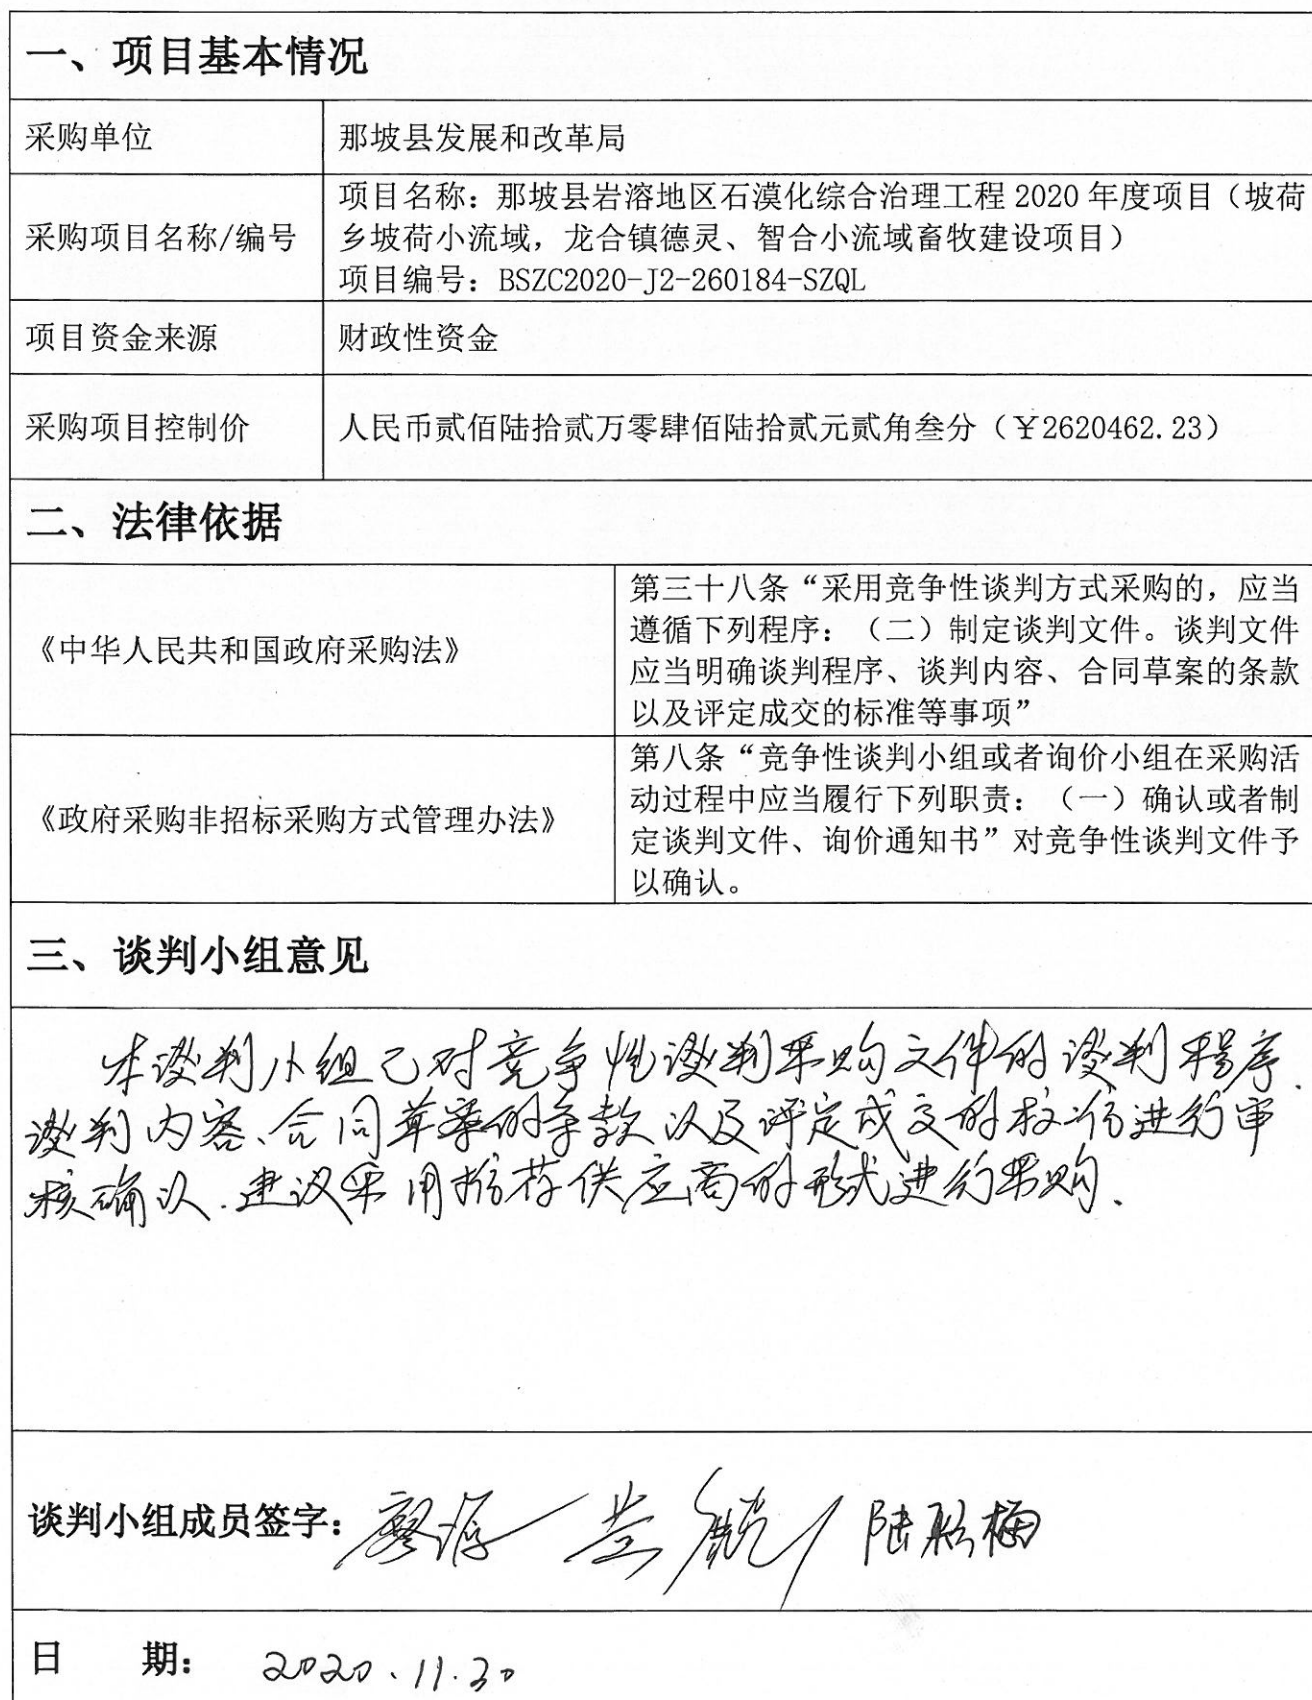 一、项目基本情况
采购单位
那坡县发展和改革局
采购项目名称/编号
项目名称：那坡县岩溶地区石漠化综合治理工程 2020 年度项目（坡荷
乡坡荷小流域，龙合镇德灵、智合小流域畜牧建设项目）
项目编号：BSZC2020-J2-260184-SZQL
项目资金来源
财政性资金
采购项目控制价
人民币贰佰陆拾贰万零肆佰陆拾贰元贰角叁分（￥2620462.23）
二、法律依据
《中华人民共和国政府采购法》
第三十八条“采用竞争性谈判方式采购的，应当
遵循下列程序：（二）制定谈判文件。谈判文件
应当明确谈判程序、谈判内容、合同草案的条款
以及评定成交的标准等事项”
《政府采购非招标采购方式管理办法》
第八条“竞争性谈判小组或者询价小组在采购活
动过程中应当履行下列职责：（一）确认或者制
定谈判文件、询价通知书”对竞争性谈判文件予
以确认。
三、谈判小组意见
本谈判小组已对竞争性谈判采购文件的谈判程序、
谈判内容、合同草案的条款以及评定成交的标准进行审
核确认.建议采用推荐供应商的形式进行采购.
谈判小组成员签字：
日 期： 2020.11.30